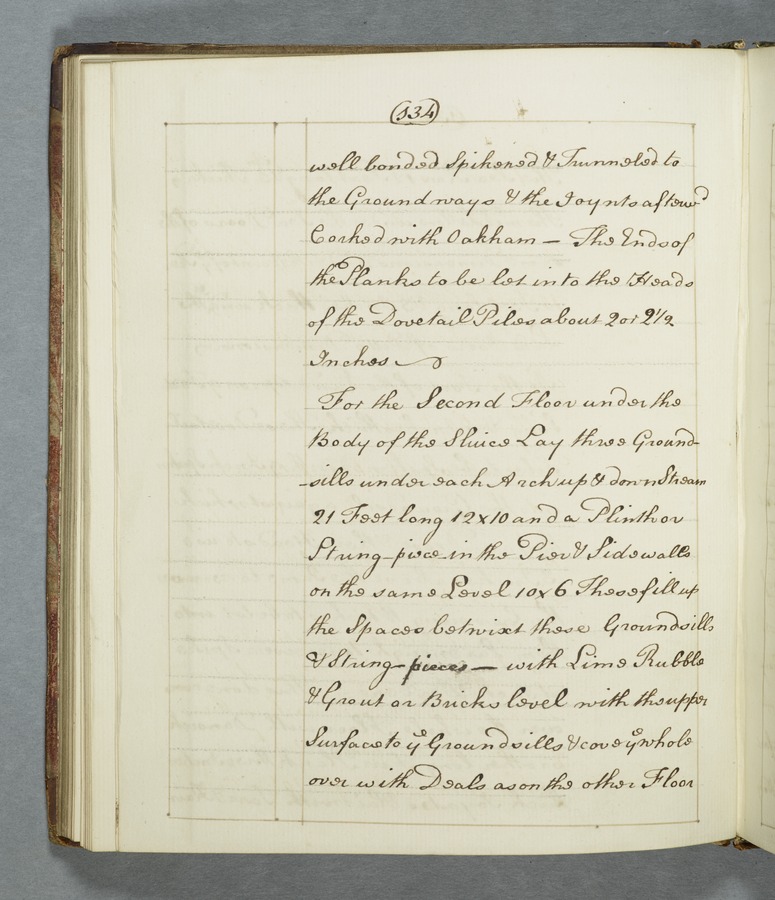 (134)
well bonded Spikened & Trunneled to
the Groundways & the Joynts afterwd
Corked with Oakham — The Ends of
the Planks to be let into the Heads
of the Dovetail Piles about 2 or 2 1/2
Inches
For the Second Floor under the
Body of the Sluice Lay three Ground-
-sills under each Arch up & down Stream
21 Feet long 12x10 and a Plinth or
String-piece in the Pier & Sidewalls
on the same Level 10x6 These fill up
the Spaces betwixt these Groundsills
& String-pieces — with Lime Rubble
& Grout or Bricks level with the upper
Surface to ye Groundsills & cove ye whole
over with Deals as on the other Floor